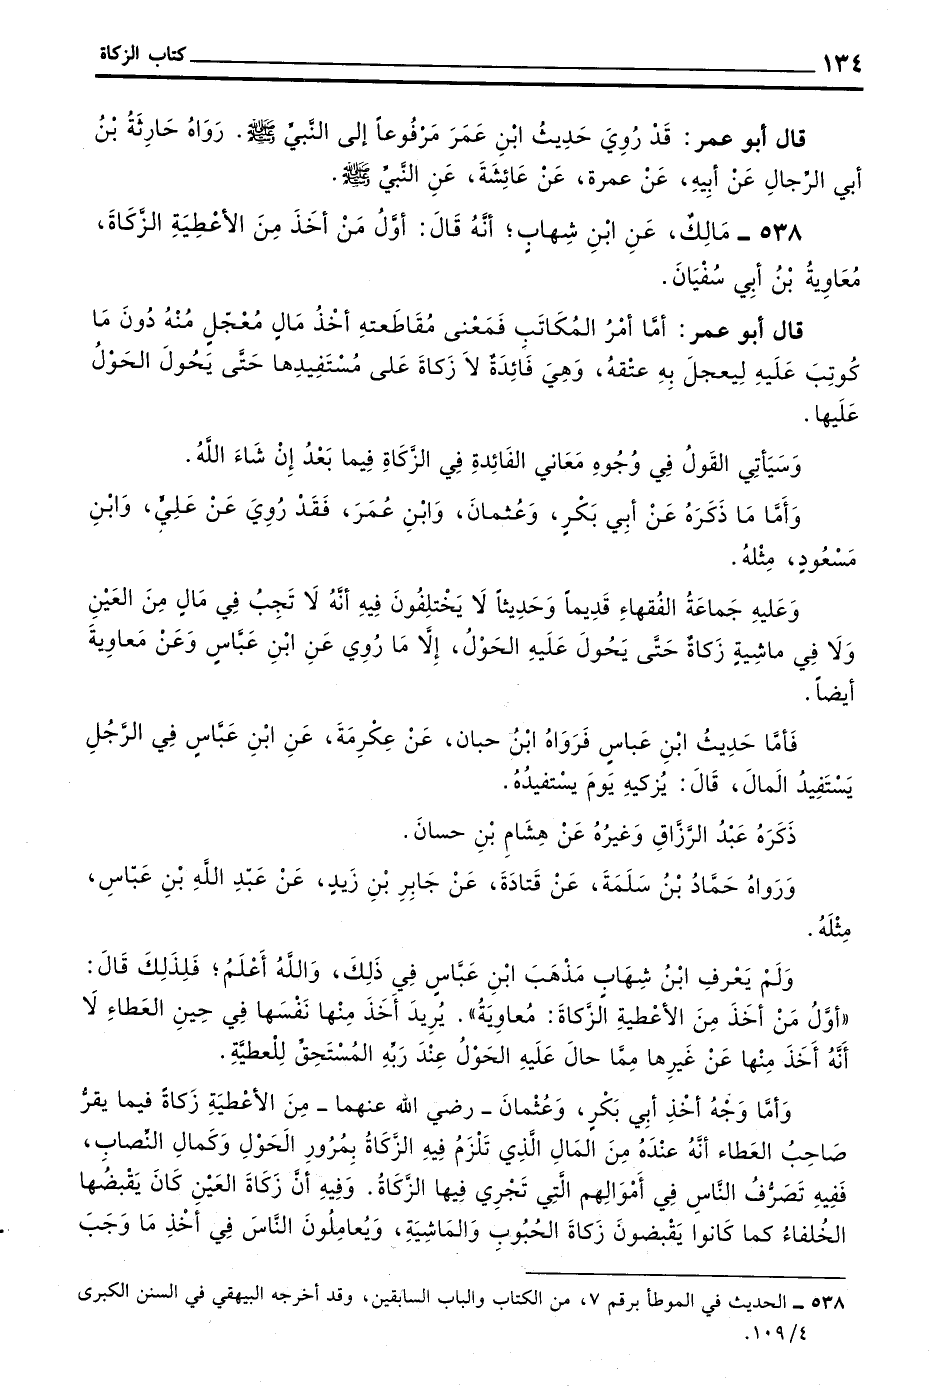 ١٣٤ كتاب الزكاة
قال أبو عمر: قَدْ رُوِيَ حَدِيثُ ابْنِ عَمَرَ مَرْفُوعاً إلى النَّبيِّ ﷺ. رَوَاهُ حَارِثَةُ بْنُ
أبي الرِّجالِ عَنْ أبيهِ، عَنْ عمرة، عَنْ عَائِشَةَ، عَنِ النَّبيِّ ﷺ.
٥٣٨ ـ مَالِكٌ، عَنِ ابْنِ شِهابٍ؛ أنَّهُ قَالَ: أوَّلُ مَنْ أخَذَ مِنَ الأعْطِيَةِ الزَّكَاةَ،
مُعَاوِيةُ بْنُ أبي سُفْيَانَ.
قال أبو عمر: أمَّا أمْرُ المُكَاتَبِ فَمَعْنى مُقَاطَعتهِ أخْذُ مَالٍ مُعْجّلٍ مُنْهُ دُونَ مَا
كُوتِبَ عَلَيهِ لِيعجلَ بِهِ عتْقهُ، وَهِيَ فَائِدَةٌ لاَ زَكاةَ عَلى مُسْتَفِيدِها حَتَّى يَحُولَ الحَوْلُ
عَلَيها.
وَسَيَأتِي القَولُ فِي وُجُوهِ مَعَاني الفَائدةِ فِي الزَّكَاةِ فِيما بَعْدُ إنْ شَاءَ اللَّهُ.
وَأمَّا مَا ذَكَرَهُ عَنْ أبي بَكْرٍ، وَعُثمانَ، وَابْنِ عُمَرَ، فَقَدْ رُوِيَ عَنْ عَلِيٍّ، وَابْنِ
مَسْعُودٍ، مِثْلهُ.
وَعَليهِ جَماعَةُ الفُقهاءِ قَديماً وَحَديثاً لَا يَخْتلِفُونَ فِيهِ أنَّهُ لَا تَجِبُ فِي مَالٍ مِنَ العَيْنِ
وَلَا فِي ماشِيةٍ زَكاةٌ حَتَّى يَحُولَ عَلَيهِ الحَوْلُ، إلَّا مَا رُوِي عَنِ ابْنِ عَبَّاسٍ وَعَنْ مَعاوِيةَ
أيضاً.
فَأمَّا حَدِيثُ ابْنِ عَباسٍ فَرَوَاهُ ابْنُ حبان، عَنْ عِكْرِمَةَ، عَنِ ابْنِ عَبَّاسٍ فِي الرَّجُلِ
يَسْتَفِيدُ المالَ، قَالَ: يُزكيهِ يَومَ يسْتفيدُهُ.
ذَكَرَهُ عَبْدُ الرَّزَّاقِ وَغيرُهُ عَنْ هِشَامِ بْنِ حسانَ.
وَرَواهُ حَمَّادُ بْنُ سَلَمَةَ، عَنْ قَتادَةَ، عَنْ جَابِرِ بْنِ زَيدٍ، عَنْ عَبْدِ اللَّهِ بْنِ عَبّاسٍ،
مِثْلَهُ.
وَلَمْ يَعْرفِ ابْنُ شِهَابٍ مَذْهَبَ ابْنِ عَبَّاسٍ فِي ذَلِكَ، وَاللَّهُ أَعْلَمُ؛ فَلِذَلِكَ قَالَ:
«أوَّلُ مَنْ أخَذَ مِنَ الأعْطيةِ الزَّكاةَ: مُعاوِيَةُ». يُرِيدَ أخَذَ مِنْها نَفْسَها فِي حِينِ العَطاءِ لَا
أنَّهُ أَخَذَ مِنْها عَنْ غَيرِها مِمَّا حالَ عَلَيهِ الحَوْلُ عِنْدَ رَبِّهِ المُسْتَحِقِّ لِلْعطيَّةِ.
وَأمَّا وَجْهُ أخْذِ أبي بَكْرٍ، وَعُثْمانَ ـ رضي الله عنهما ـ مِنَ الأعْطِيَةِ زَكاةً فيما يقرُّ
صَاحِبُ العَطاء أنَّهُ عنْدَهُ مِنَ المَالِ الَّذِي تَلْزَمُ فِيهِ الزَّكَاةُ بِمُرُورِ الحَوْلِ وَكَمالِ النِّصابِ،
فَفِيهِ تَصَرُّفُ النَّاسِ فِي أمْوَالِهم الَّتِي تَجْرِي فِيها الزَّكَاةُ. وَفِيهِ أنَّ زَكَاةَ العَيْنِ كَانَ يَقْبضُها
الخُلفاءُ كما كَانُوا يَقْبضونَ زَكاةَ الحُبُوبِ وَالمَاشِيَةِ، وَيُعامِلُونَ النَّاسَ فِي أخْذِ مَا وَجَبَ
٥٣٨ ـ الحديث في الموطأ برقم ٧، من الكتاب والباب السابقين، وقد أخرجه البيهقي في السنن الكبرى
٤/ ١٠٩.